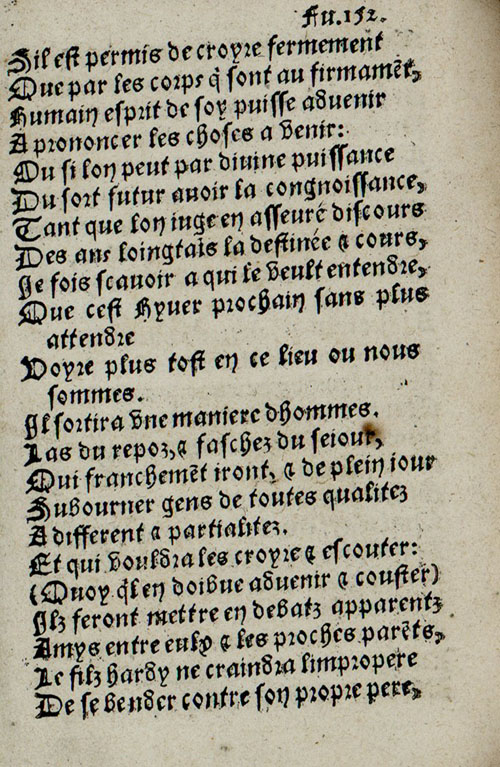 Fu.152.
Sil est permis de croyre fermement
Que par les corps q̃ sont au firmamẽt,
Humain esprit de soy puisse advenir
A prononcer les choses a venir:
Ou si lon peut par divine puissance
Du sort futur avoir la congnoissance,
Tant que lon iuge en asseuré discours
Des ans loingtaĩs la destinée & cours,
Je fois scavoir a qui le veult entendre,
Que cest Hyver prochain sans plus
attendre
Voyre plus tost en ce lieu ou nous
sommes.
Il sortira vne maniere dhommes.
Las du repoz, & faschez du seiour,
Qui franchemẽt iront, & de plein iour
Subourner gens de toutes qualitez
A different & partialitez.
Et qui vouldra les croyre & escouter:
(Quoy q̃l en doibue advenir & couster)
Ilz feront mettre en debatz apparentz
Amys entre eulx & les proches parẽts,
Le filz hardy ne craindra limpropere
De se bender contre son propre pere,